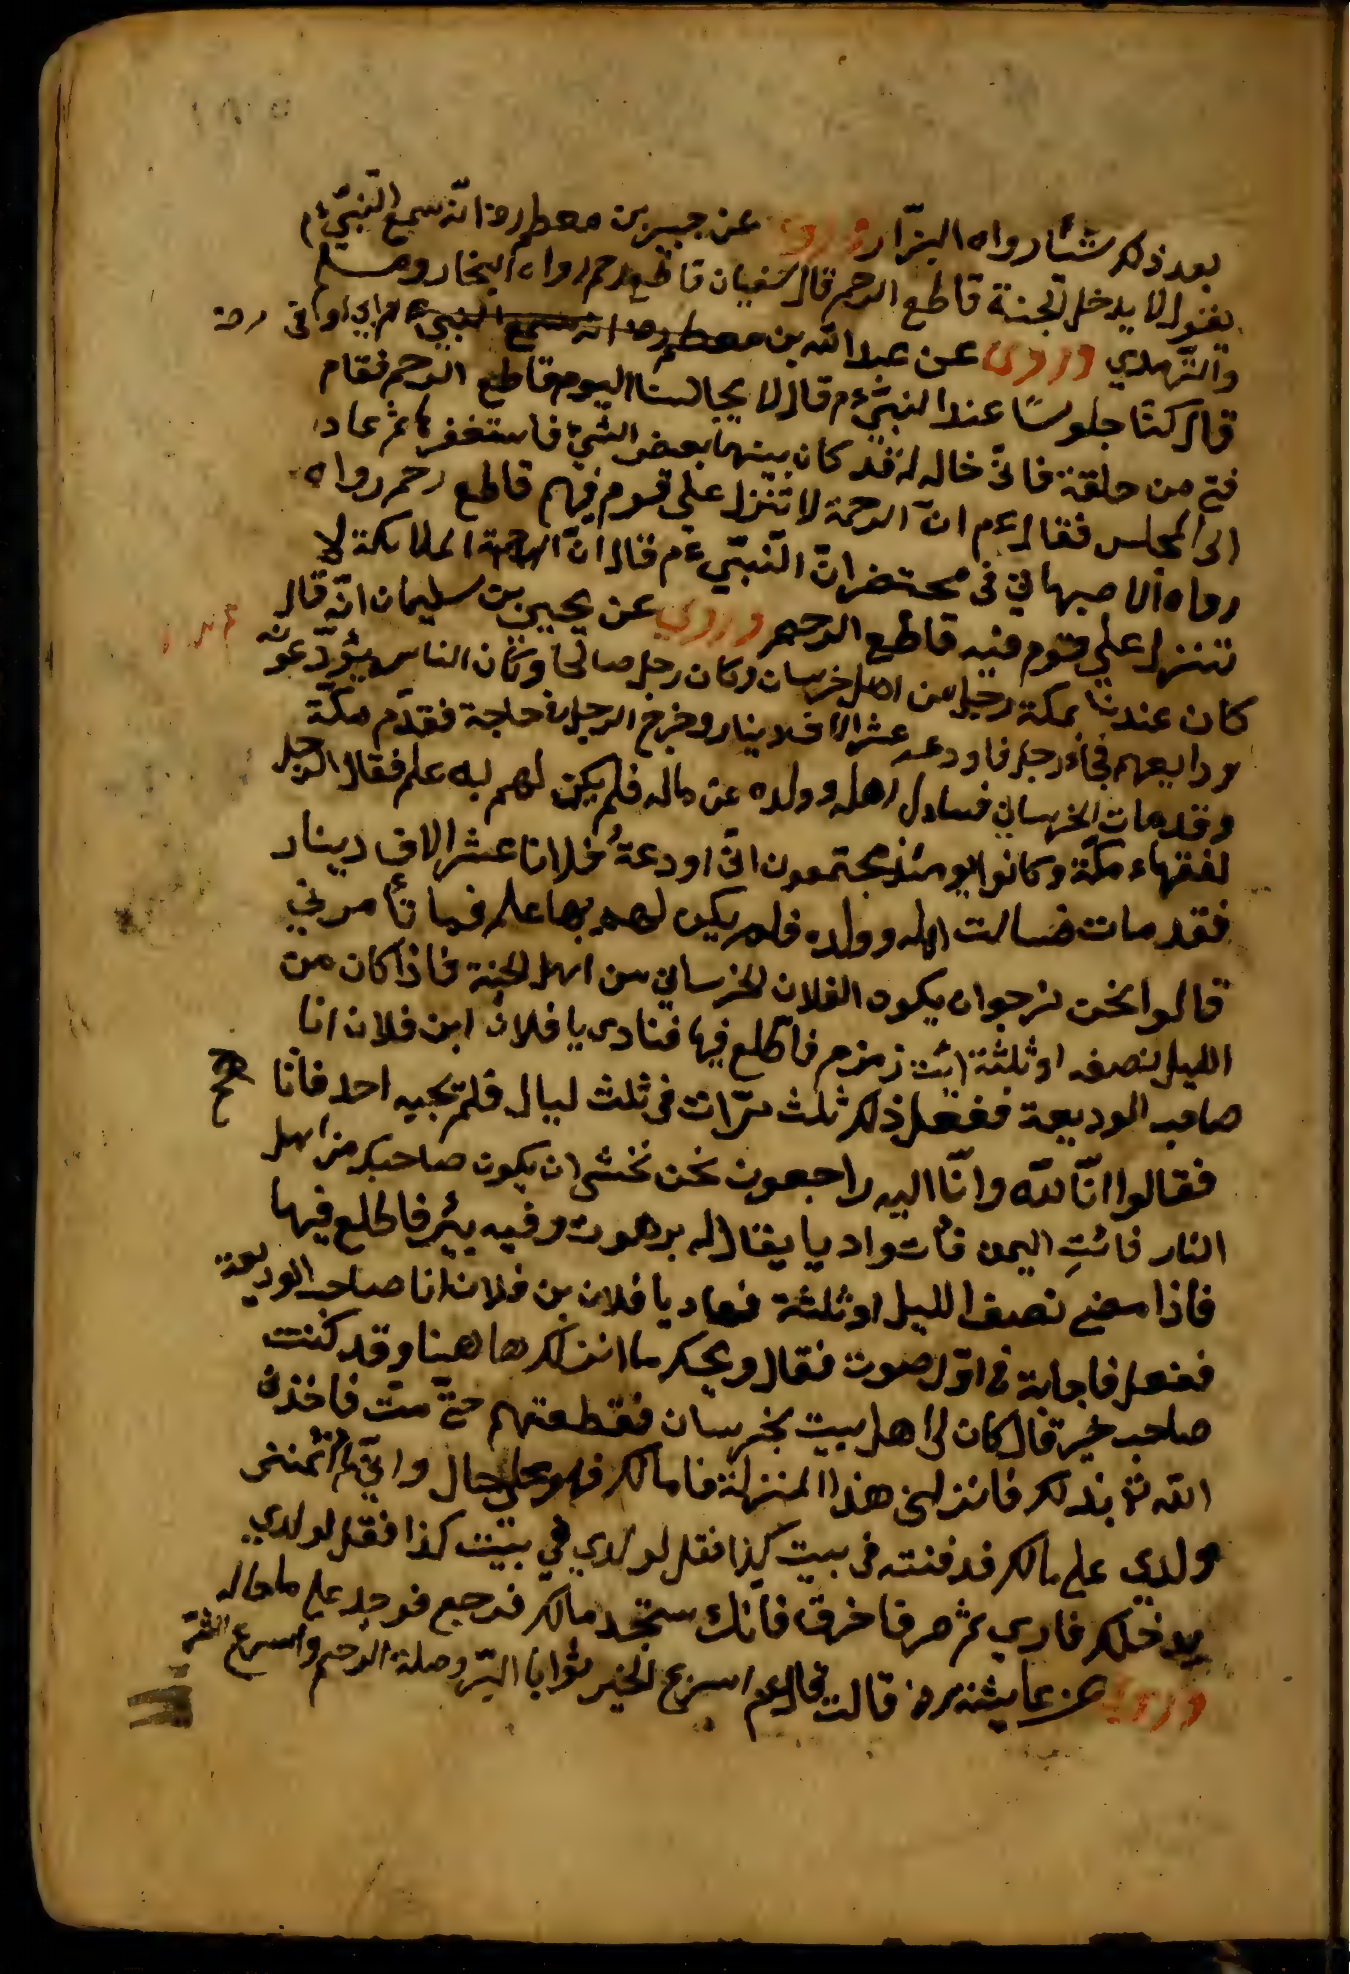 بعد ذلك شئا رواه البزّار وروى عن جبير بن معطم رضه انّه سمع النّبيّ ءم
يقول لا يدخل الجنة قاطع الرحم قال سفيان قاطع رحم رواه البخار ومسلم
والتّرمدي وروى عن عبد الله بن معطم رضه انه سمع النبي ءم ابي اوفى رضه
قال كنّا جلوسًا عند النبيّ ءم قال لا يجالسنا اليوم قاطع الرحم فقام
فتى من حلقة فاتى خاله له قد كان بينهما بعض الشيئ فاستغفر لها ثم عاد
الى المجلس فقال ءم انّ الرحمة لا تنزل على قوم فيهم قاطع رحم رواه
رواه الاصبهاني في محتضر انّ النّبيّ ءم قال انّ الملائكة لا
تنزل على قوم فيه قاطع الرحم وروى عن يحيى بن سليمان انّه قال
كان عندنا بمكة رجل من اهل خرسان وكان رجل صالحا وكان الناس يؤدّعونه
ودايعهم فجاء رجل فاودعه عشر الاف دينار وخرج الرجل في حاجة فقدّم مكّة
وقد مات الخرساني فساءل اهله وولده عن ماله فلم يكن لهم به علم فقال الرجل
لفقهاء مكّة وكانوا يومئذ مجتمعون انّى اودعةُ فلانا عشر الاف دينار
فقد مات فسالت اهله وولده فلم يكن لهم بها علم فما تأمروني
قالوا نحن نرجوا ان يكون الفلان الخرساني من اهل الجنة فاذا كان من
الليل نصفه او ثلثة ائت زمزم فاطلع فيها فنادى يا فلان ابن فلان انا
صاحب الوديعة ففعل ذلك ثلث مرّات في ثلث ليال فلم تجبه احد فانا
فقالوا انّا للّه وانّا اليه راجعون نحن نخشى ان يكون صاحبك من اهل
النار فائتِ اليمن فأت واديا يقال له برهوت وفيه بيئر فاطلع فيها
فاذا مضى نصف الليل او ثلثة فناد يا فلان بن فلان انا صاحب الوديعة
ففعل فاجابة في اوّل صوت فقال ويحك ما انزلك هاهنا وقد كنت
صاحب خير قال كان لى اهل بيت بخرسان فقطعتهم حتّى متّ فاخذنى
الله تع بذلك فانزلنى هذا المنزلة فاما لك فهو على حال وانّي لم أئتمن
ولدي على مالك قد فنته في بيت كذا فقل لولدي في بيت كذا فقل لولدي
يدخلك فاري ثم صر فاخرق فانك ستجد مالك فرجع فوجد على ما حاله
وروى عن عايشة رضه قالت قال ءم اسرع الخير ثوابا البرّ وصلة الرحم واسرع الشّرّ